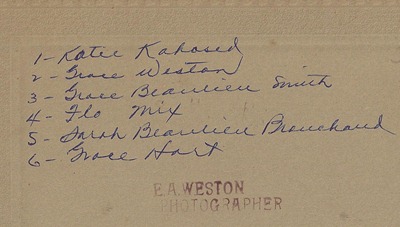 1 - Katie Kahosed
2 - Grace Weston
3 - Grace Beaulieu Smith
4 - Flo Mix
5 - Sarah Beaulieu Branchaud
6 - Grace Hart
E.A. WESTON
PHOTOGRAPHER